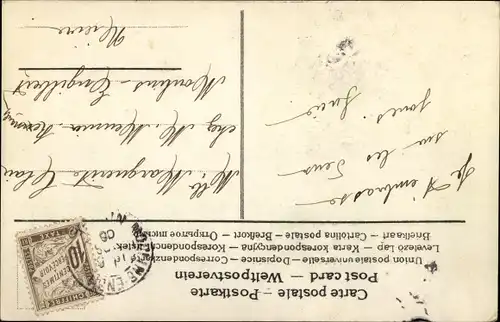 Carte postale – Postkarte
Post card – Weltpostverein
Union postale universelle – Dopisnice – Correspondenzkarte
Levelező Lap – Karta korespondencyjna – Korespondenční lístek
Briefkaart – Cartolina postale – Brefkort – Открытое письмо
Je t'embrasse
sur les deux
joues. Lucie
Mlle Marguerite Clair
chez M. Meunier
Moulins-Engilbert
Nièvre
10
CENTIMES
À PERCEVOIR
CHIFFRE
TAXE